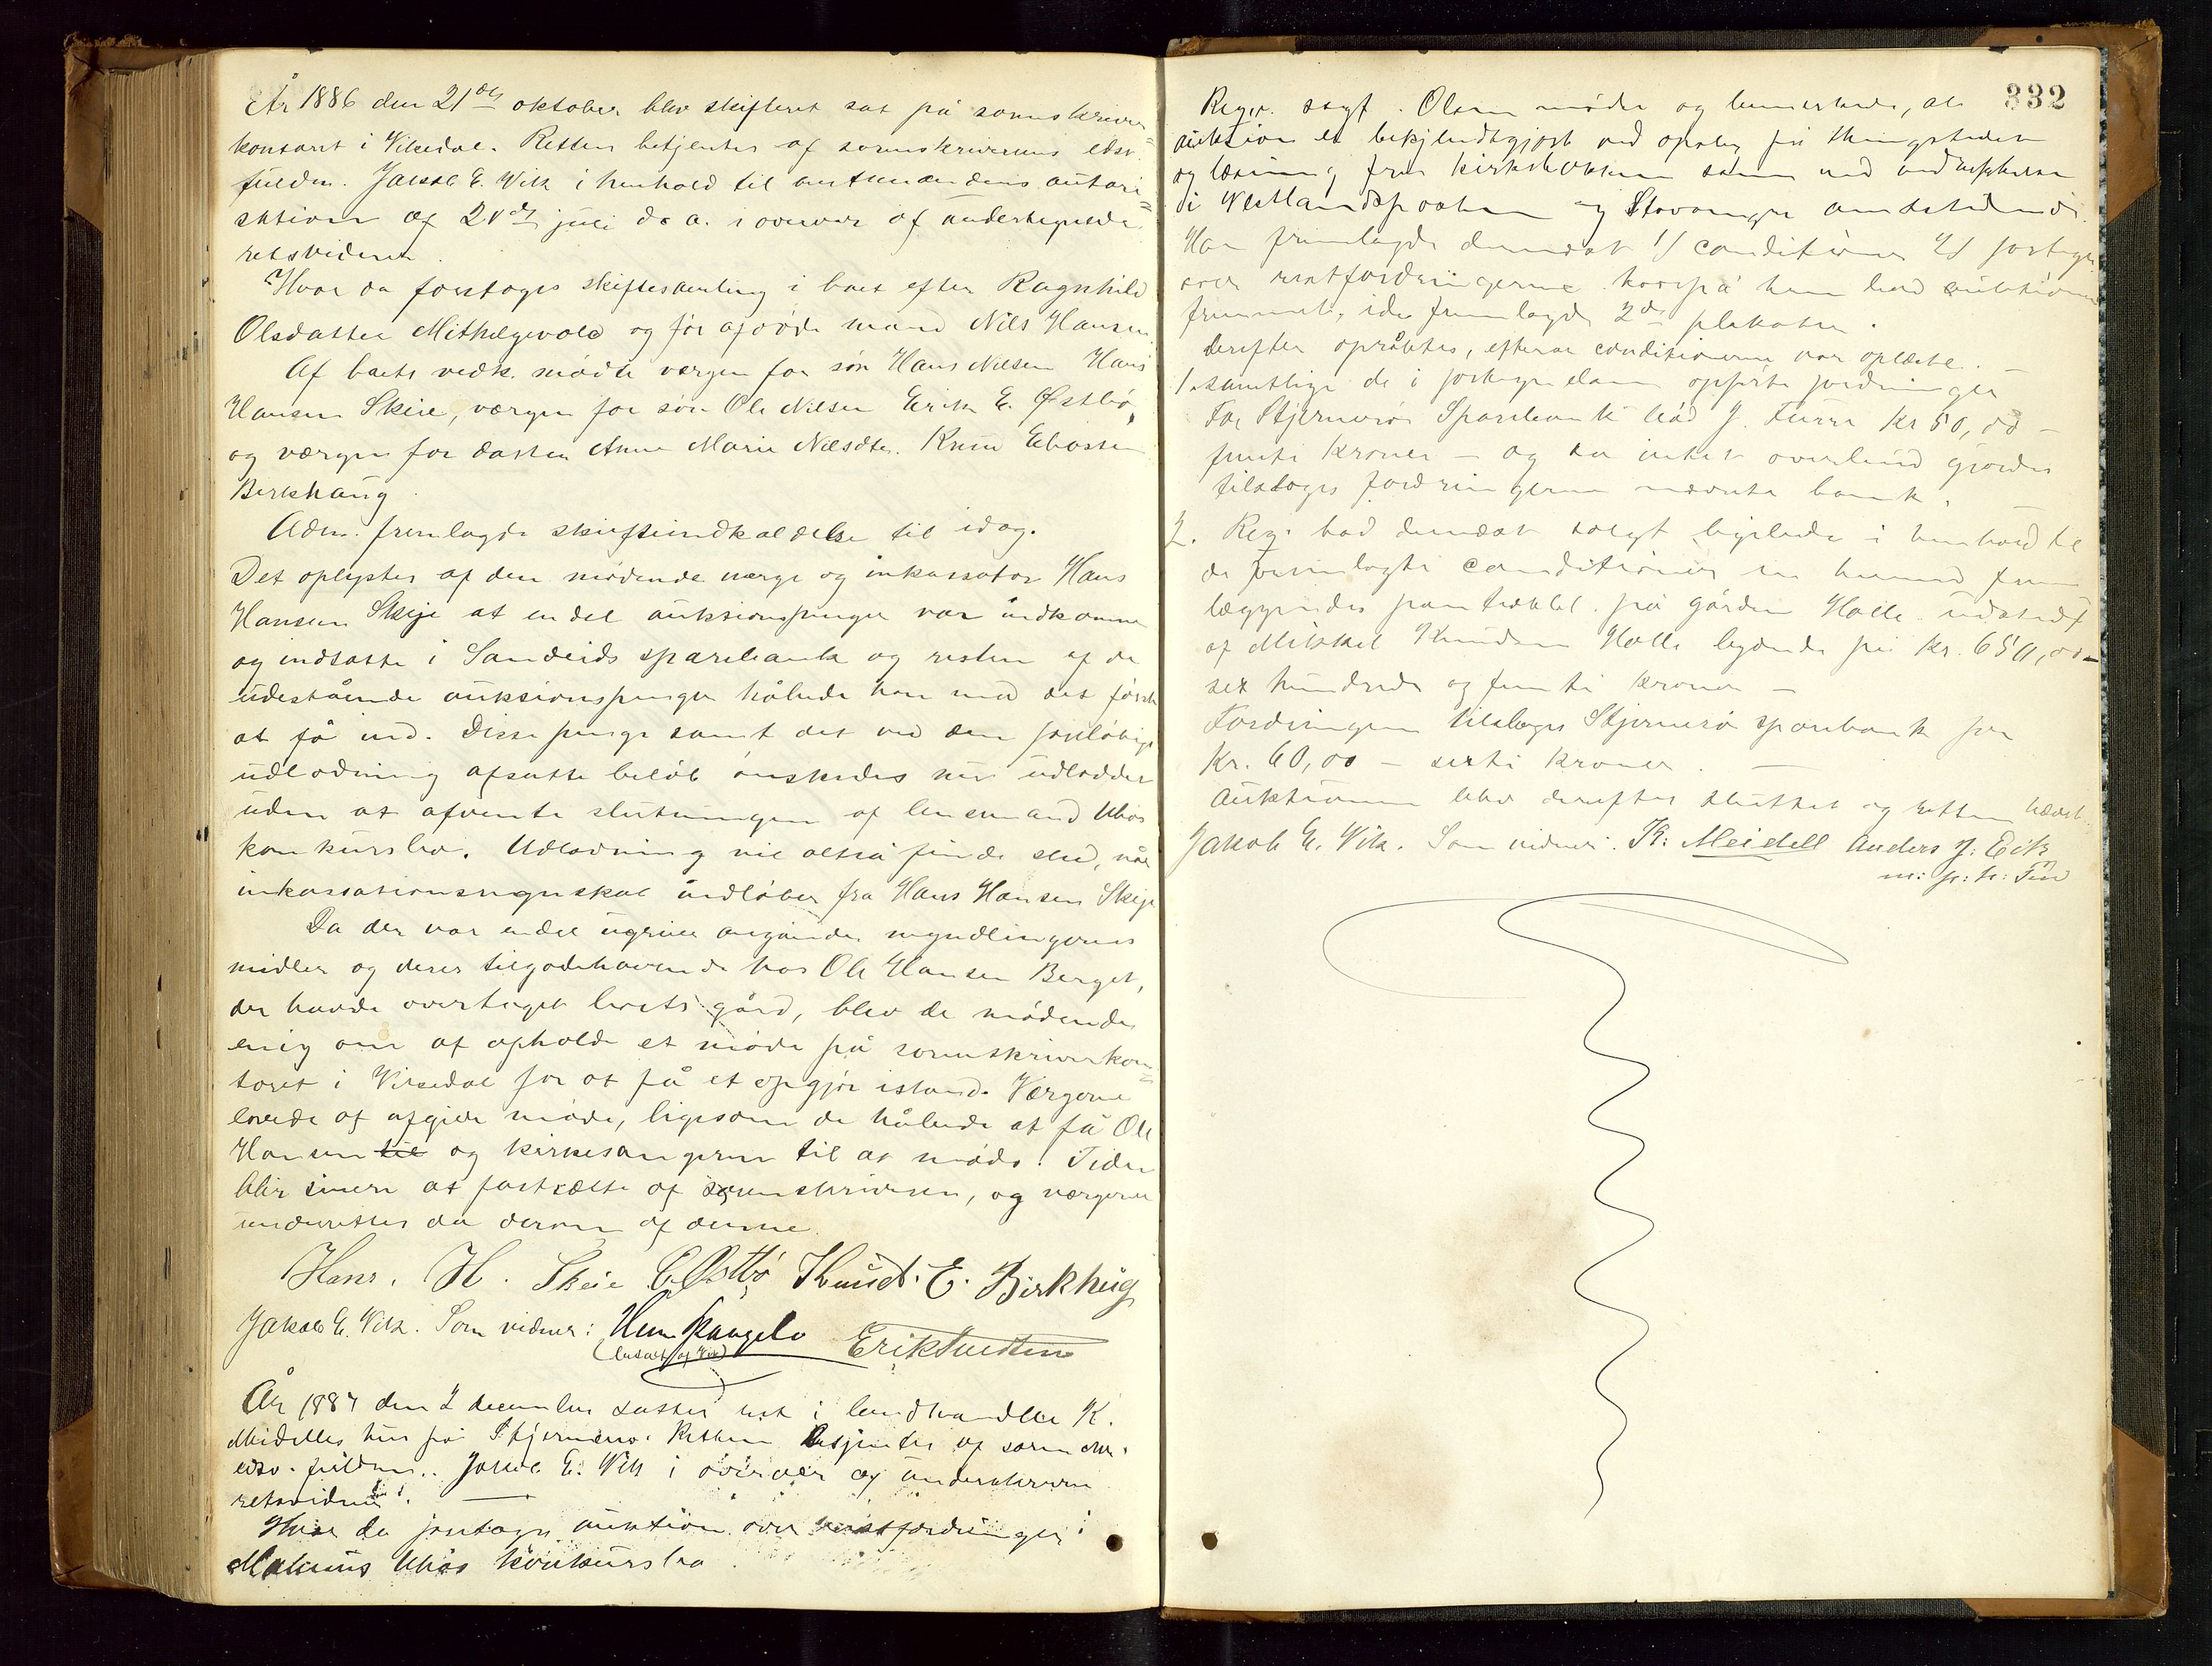 År 1886 den 21de oktober blev skifteret sat på sorenskriver=
kontoret i Vikedal. Retten betjentes af sorenskriverens edsv.
fuldm. Jakob E. Vik i henhold til amtmandens autori=
sation af 21de juli d. a. i overvær af undertegnede
retsvidner.
Hvor da foretoges skiftesamling i boet efter Ragnhild
Olsdatter Mithelgevold og før afdøde mand Nils Hansen.
Af boets vedk. mødte vergen for søn Hans Nilsen Hans
Hansen Skeie, værgen for søn Ole Nilsen Erik E. Østbø,
og værgen for datter Anne Marie Nilsdtr. Knud
Berkhaug.
Adm. fremlagde skifteindkaldelse til idag.
Det oplystes af den mødende værge og inkassator Hans
Hansen Skeje at en del auksionspenge var indkomne
og indsatte i Sandeids sparebank og resten af de
udestående auksionspenge håbede han med det første
at få ind. Disse penge samt det ved den foreløbige
udlodning afsatte beløb ønskedes nu udloddet
uden at afvente slutningen af lensmand Uhos
konkursbo. Udlodning vil altså finde sted, når
inkassationsregnskab indløber fra Hans Hansen Skeje
Da der var endel ugreie angående myndlingernes
midler og deres tilgodehavende hos Ole Hansen Berget,
der havde overtaget boets gård, blev de mødende
enig om at opholde et møde på sorenskriverkon=
toret i Vikedal for at få et opgjør istand. Værgerne
lovede at afgive møde, ligesom de håbede at få Ole
Hansen til og kirkesangeren til at møde. Tiden
blir senere at fastsætte af sorenskriveren, og værgerne
underrettes da derom af denne.
Hans. H. Skeie E. Østbø Knud. E. Birkhug
Jakob E. Vik. Som vidner: Erik Knudsen
År 1887 den 2 december sattes ret i landhandler K.
Meidells hus på Stjernerø. Retten betjentes af sorenskr.
edsv. fuldm. Jakob E. Vik i overvær af underskrevne
retsvidner.
Hvor da foretoges auktion over restfordringer i
Uhos konkursbo.
332
Olsen mødte og bemerkede, at
auktion er bekjendtgjort ved opslag på thingstedet
og læsning fra kirkebakken samt ved indrykkelse
i Vestlandsposten og Stavanger amtstidende.
Han fremlagde dernæst 1/ conditioner 2/ fortegn.
over restfordringerne, hvorpå han bad auktionen
fremmet, idet fremlagde 2de plakater.
Derefter opråbtes, efterat conditionerne var oplæste.
1. samtlige de i fortegnelsen opførte fordringer
For Stjernerø Sparebank bød J. Furre Kr 50,00 –
femti kroner – og da intet overbud gjordes
tilsloges fordringerne nævnte bank.
2. Reg. bad dernæst solgt ligeledes i henhold til
de fremlagte conditioner en hermed frem
læggendes panteobl. på gården Halle udstedt
af Mikkel Knudsen Halle lydende på kr. 650,00 –
sex hundrede og femti kroner –
Fordringen tilsloges Stjernerø sparebank for
Kr. 60,00 – sexti kroner. –
Auktionen blev derefter sluttet og retten hævet.
Jakob E. Vik. Som vidner: K. Meidell Anders J. Eik
m: p: p: